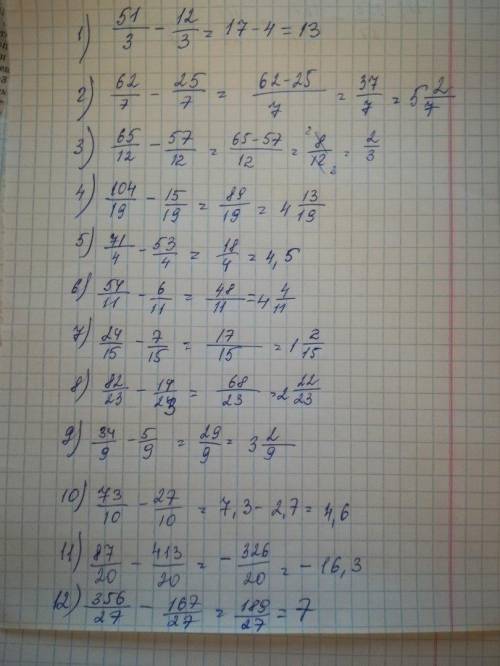 1) 51/3 - 12/3 = 17 - 4 = 13
2) 62/7 - 25/7 = (62-25)/7 = 37/7 = 5 2/7
3) 65/12 - 57/12 = (65-57)/12 = 8/12 = 2/3
4) 104/19 - 15/19 = 89/19 = 4 13/19
5) 71/4 - 53/4 = 18/4 = 4,5
6) 54/11 - 6/11 = 48/11 = 4 4/11
7) 24/15 - 7/15 = 17/15 = 1 2/15
8) 82/23 - 14/23 = 68/23 = 2 22/23
9) 34/9 - 5/9 = 29/9 = 3 2/9
10) 73/10 - 27/10 = 7,3 - 2,7 = 4,6
11) 87/20 - 413/20 = - 326/20 = - 16,3
12) 356/27 - 167/27 = 189/27 = 7